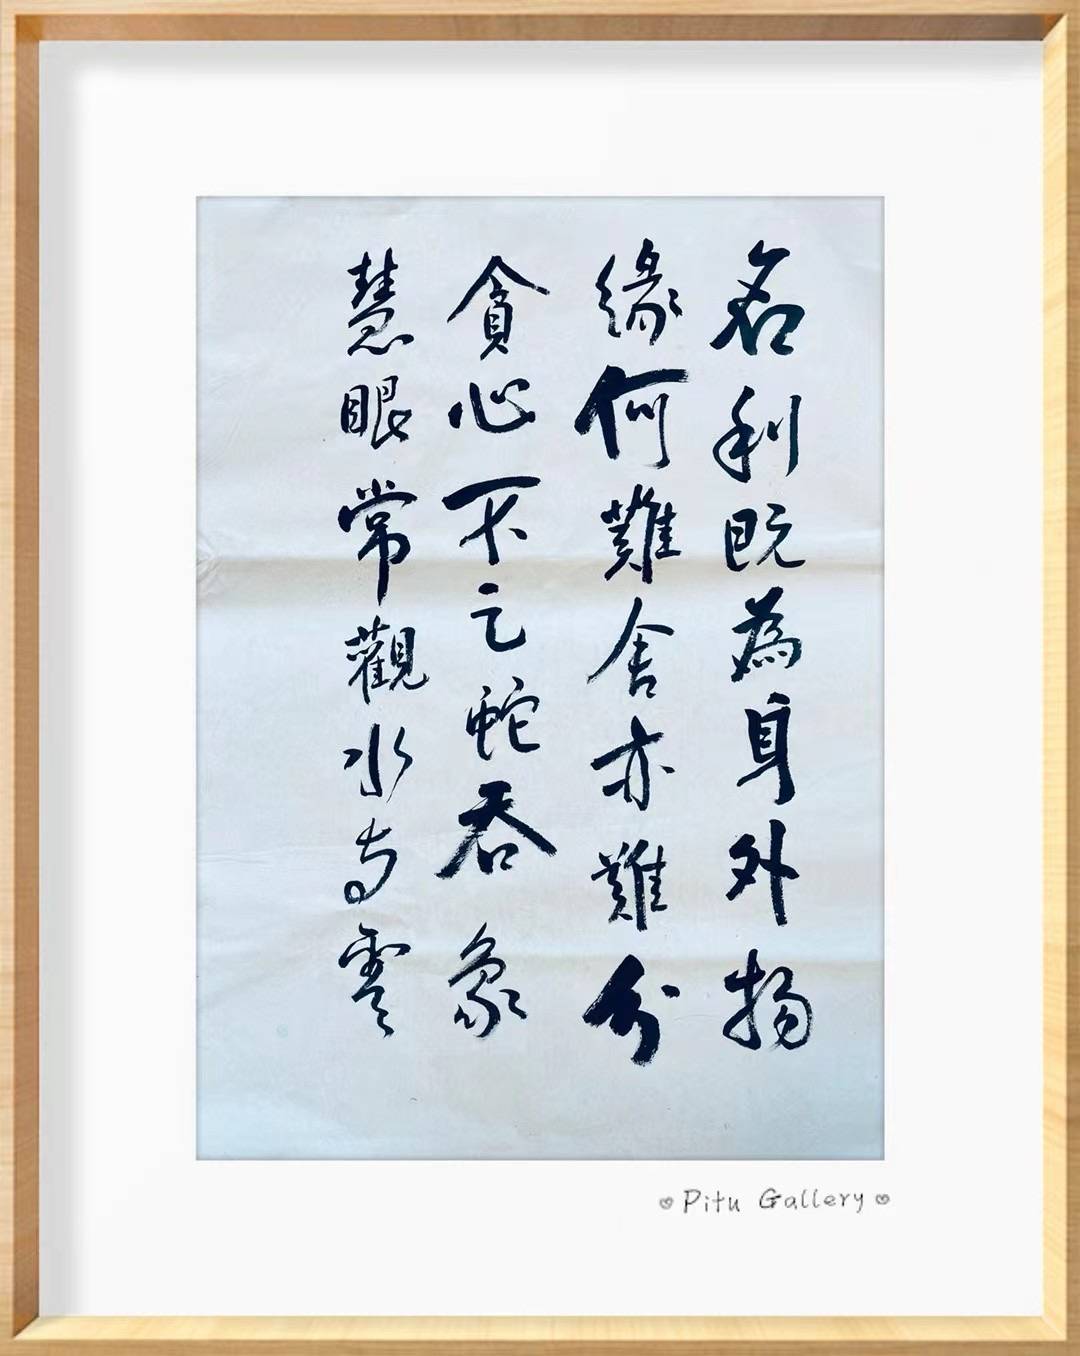 名利既為身外物
緣何難舍亦難分
貪心不乏蛇吞象
慧眼常觀水与雲
Pitu Gallery